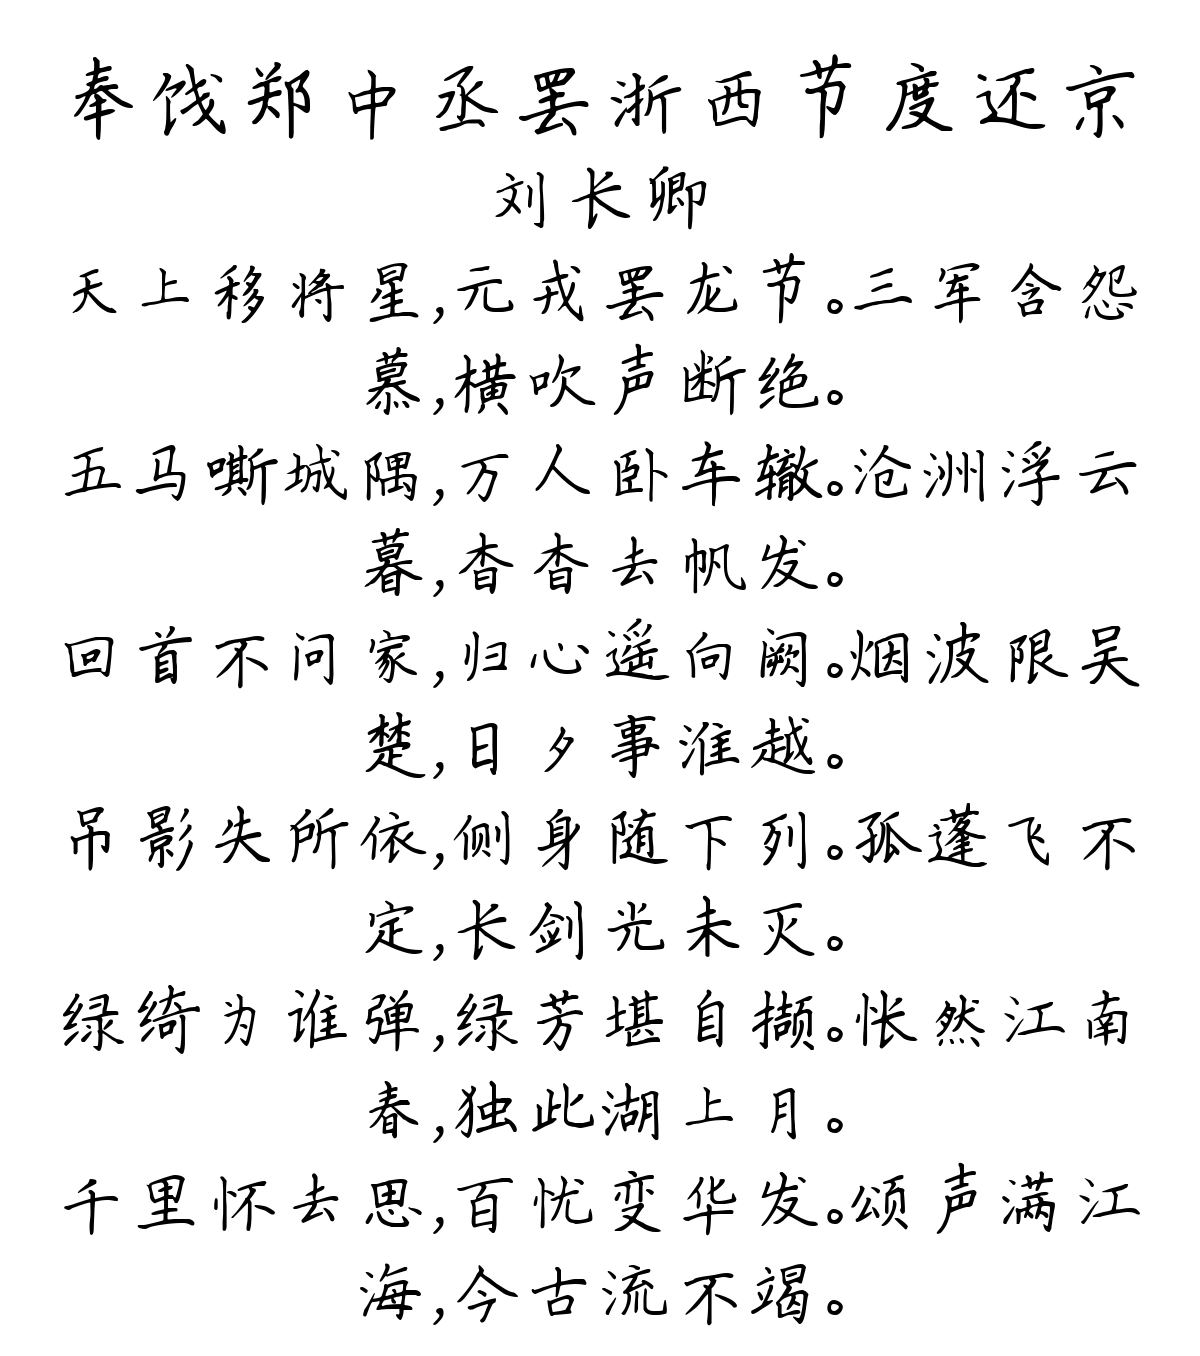 奉饯郑中丞罢浙西节度还京
刘长卿
天上移将星,元戎罢龙节。三军含怨
慕,横吹声断绝。
五马嘶城隅,万人卧车辙。沧洲浮云
暮,杳杳去帆发。
回首不问家,归心遥向阙。烟波限吴
楚,日夕事淮越。
吊影失所依,侧身随下列。孤蓬飞不
定,长剑光未灭。
绿绮为谁弹,绿芳堪自撷。怅然江南
春,独此湖上月。
千里怀去思,百忧变华发。颂声满江
海,今古流不竭。